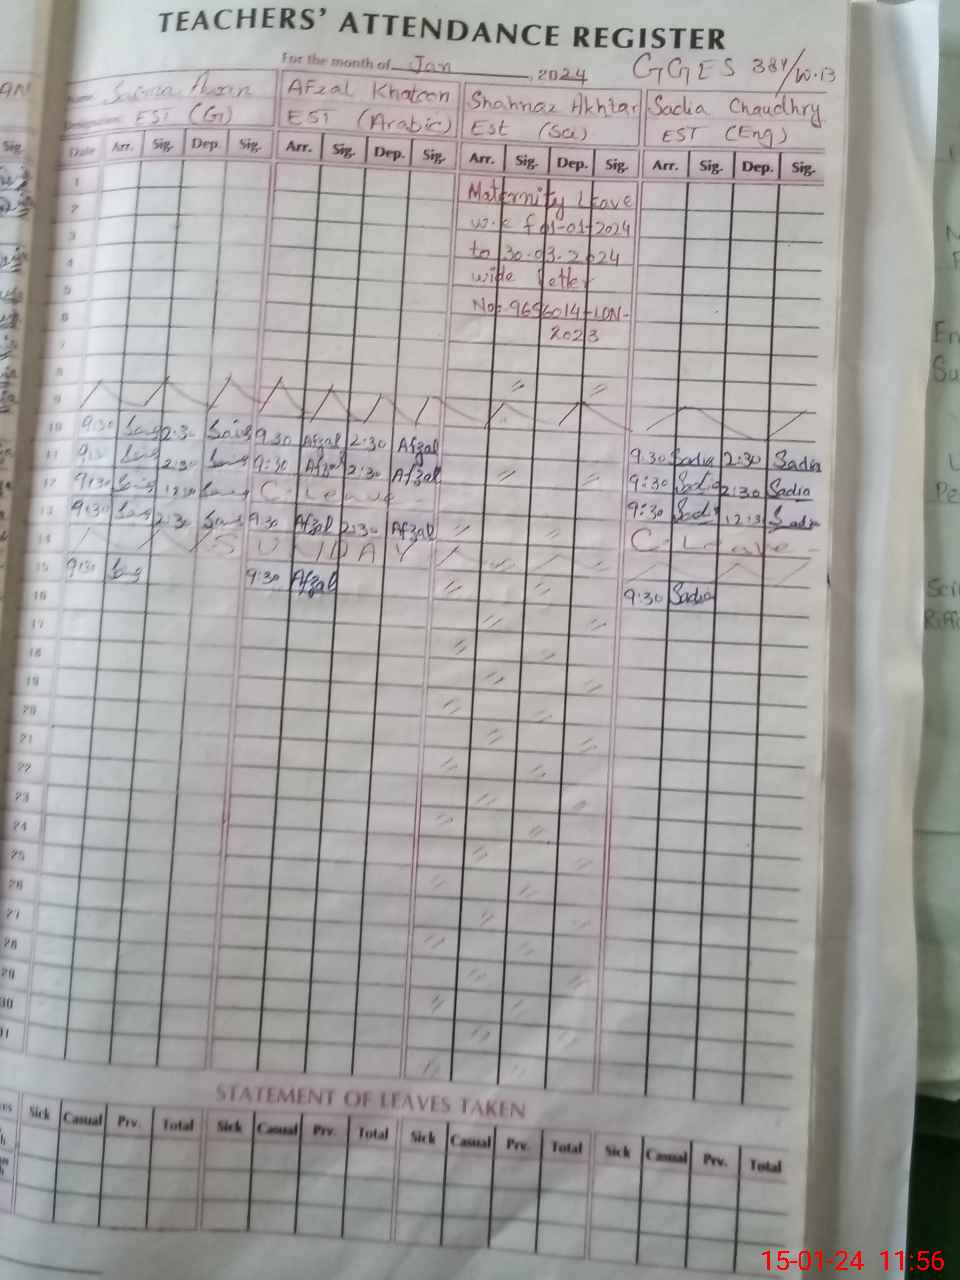 TEACHERS' ATTENDANCE REGISTER
For the month of Jan, 2024 GGES 384/W.B
Name Afzal Khatoon Shahnaz Akhtar Sadia Chaudhry
EST (G) EST (Arabic) Est (Sci) EST (Eng)
Date Arr. Sig. Dep. Sig. Arr. Sig. Dep. Sig. Arr. Sig. Dep. Sig. Arr. Sig. Dep. Sig.
1 Maternity Leave
2 w.e f 01-01-2024
3 to 30-03-2024
4 wide letter
5 No: 9696014-LDN-
6 2023
7
8
9
10 9:30 2:30 9.30 Afzal 2:30 Afzal 9.30 Sadia 2:30 Sadia
11 2:30 9:30 Afzal 2:30 Afzal 9:30 Sadia 2:30 Sadia
12 9:30 12:30 C-Leave - 9:30 Sadia 12:3 Sadia
13 9:30 2:30 9:30 Afzal 2:30 Afzal C-Leave -
14 SUNDAY
15 9:30 9:30 Afzal 9:30 Sadia
16
17
18
19
20
21
22
23
24
25
26
27
28
29
30
31
STATEMENT OF LEAVES TAKEN
Sick Casual Prv. Total Sick Casual Prv. Total Sick Casual Prv. Total Sick Casual Prv. Total
15-01-24 11:56